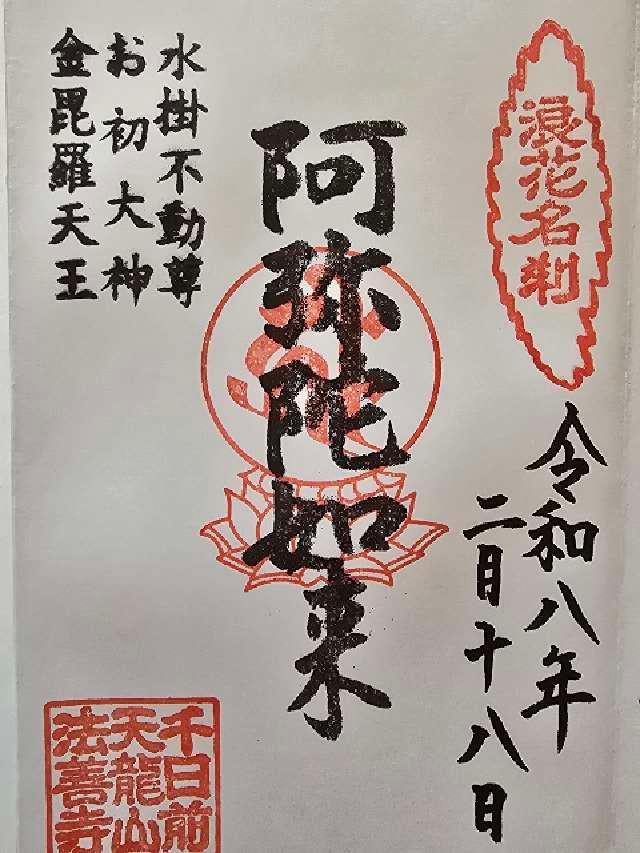 浪花名刹
令和八年
二月十八日
阿弥陀如来
水掛不動尊
お初大神
金毘羅天王
千日前
天龍山
法善寺